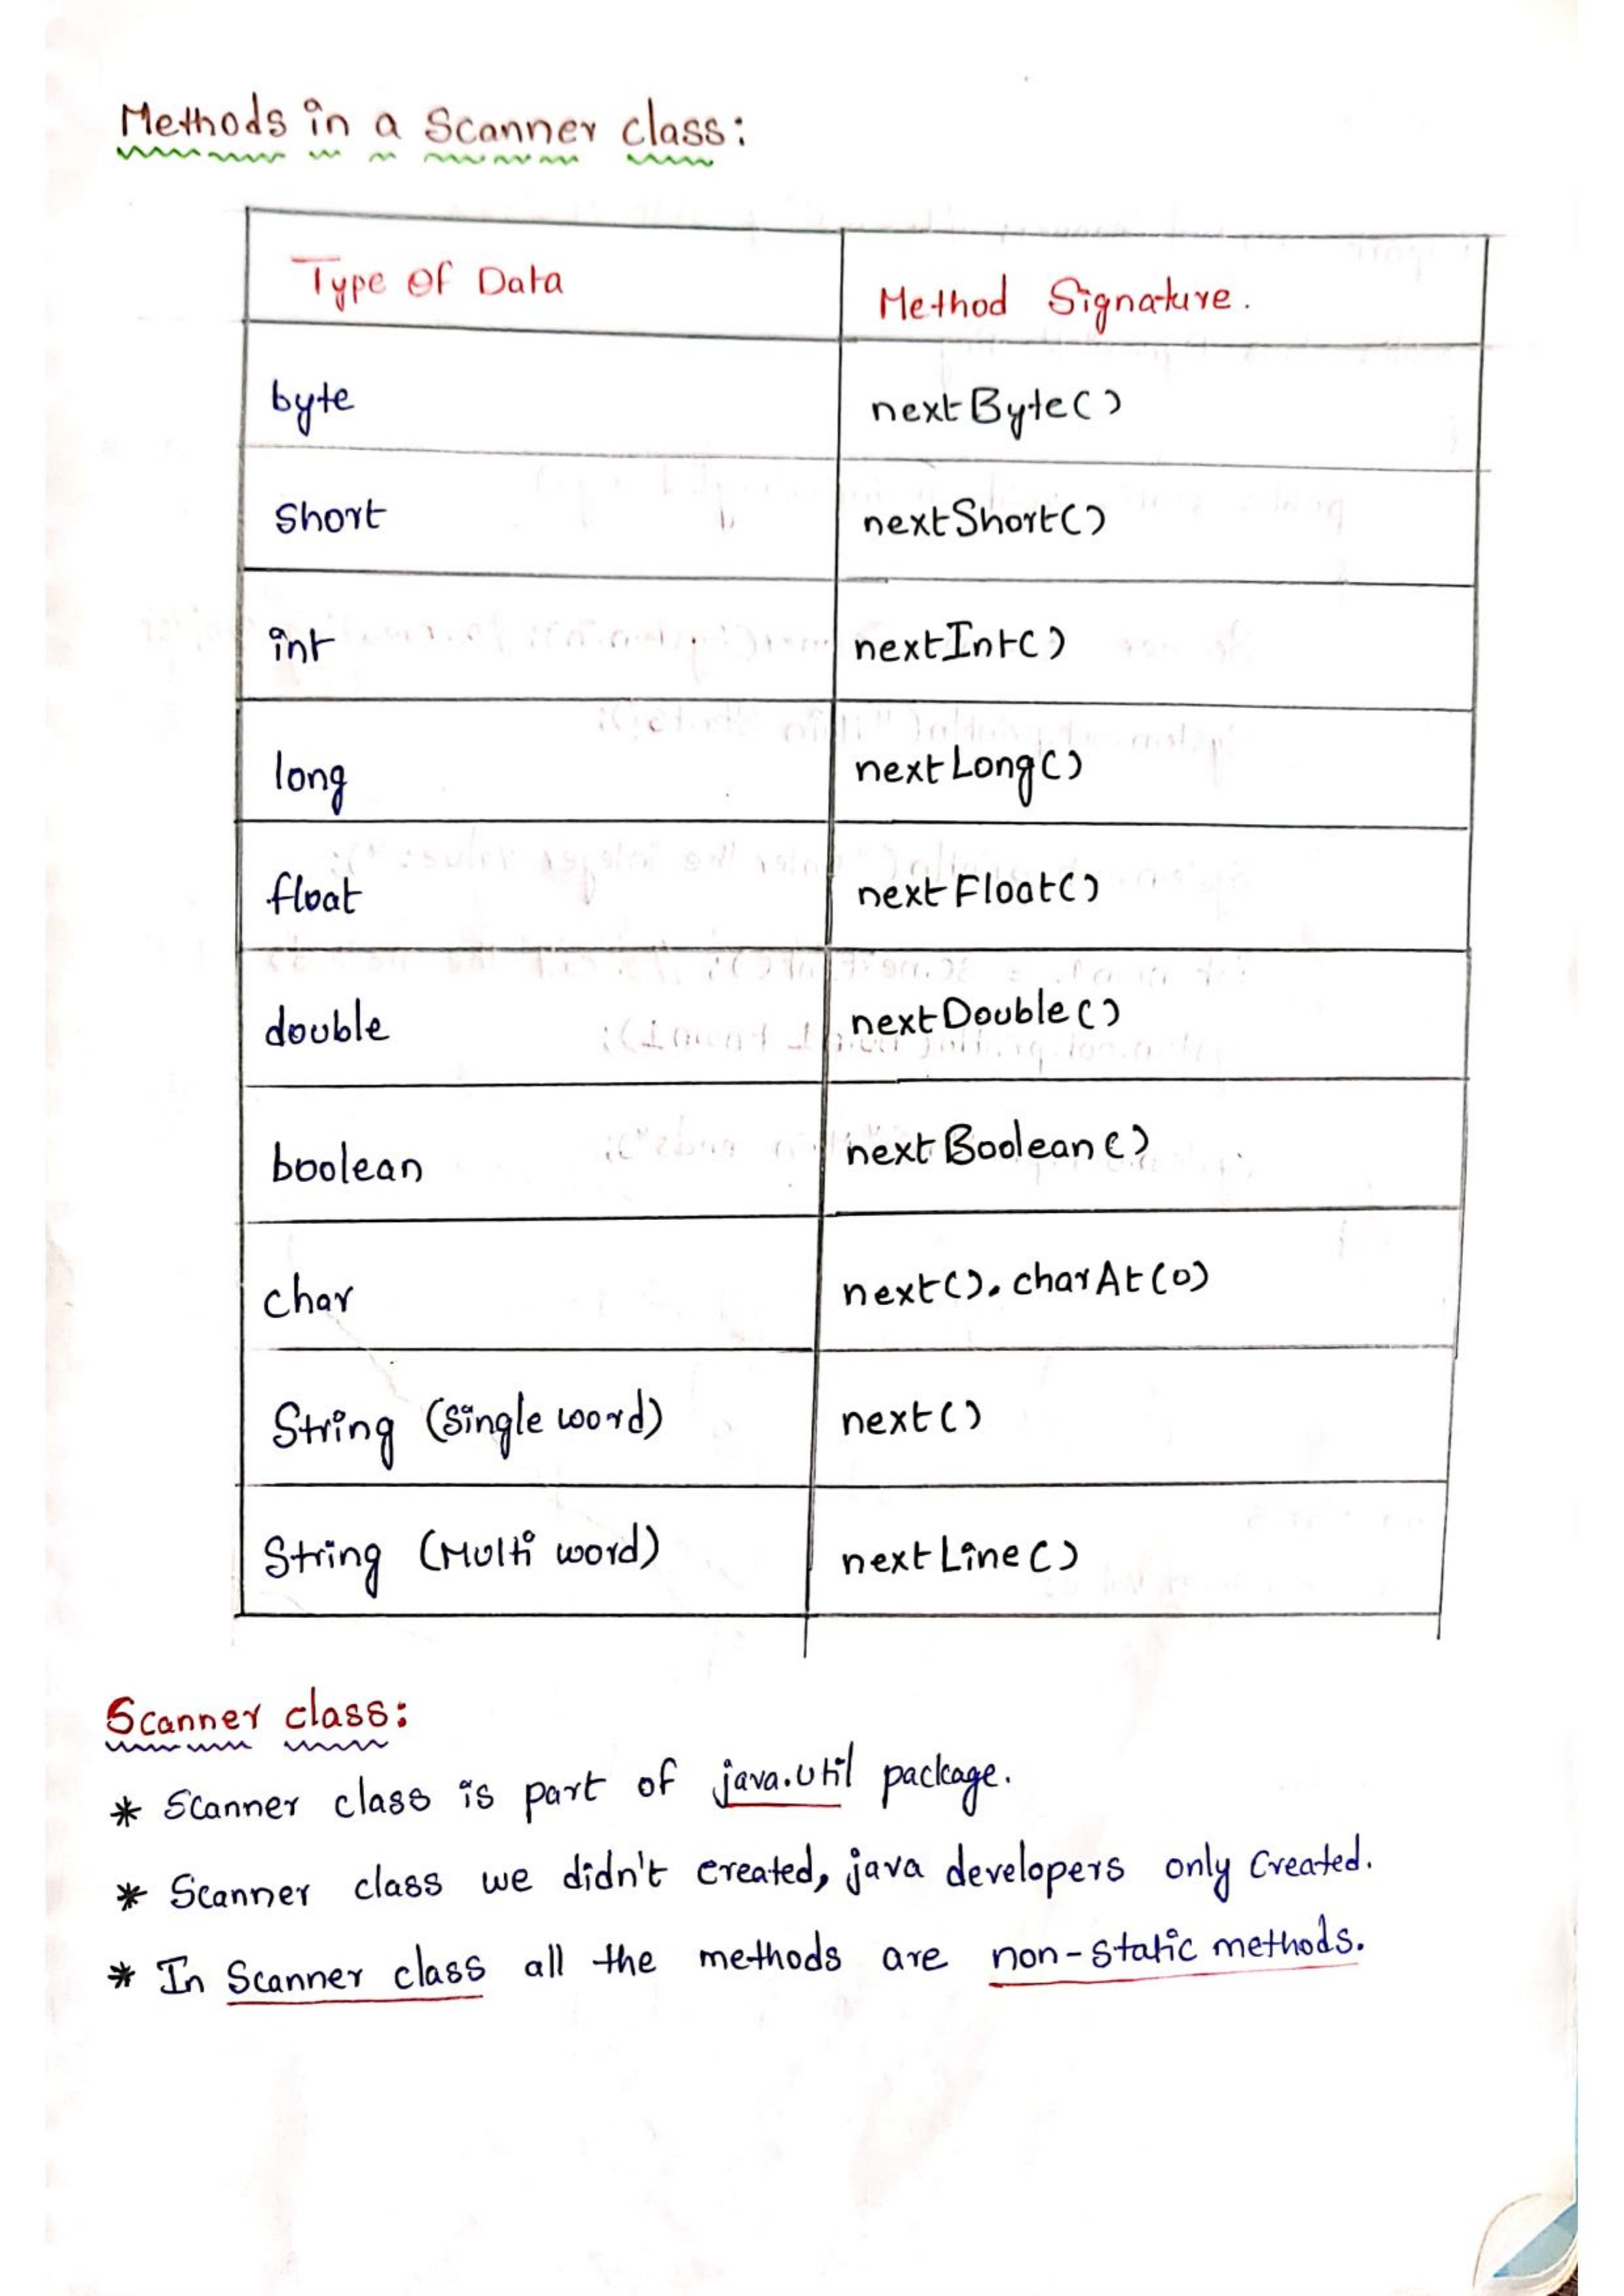 Methods in a Scanner class:
Type of Data Method Signature.
byte nextByte()
Short nextShort()
int nextInt()
long nextLong()
float nextFloat()
double nextDouble()
boolean nextBoolean()
char next().charAt(0)
String (Single word) next()
String (Multi word) nextLine()
Scanner class:
* Scanner class is part of java.util package.
* Scanner class we didn't created, java developers only Created.
* In Scanner class all the methods are non-static methods.